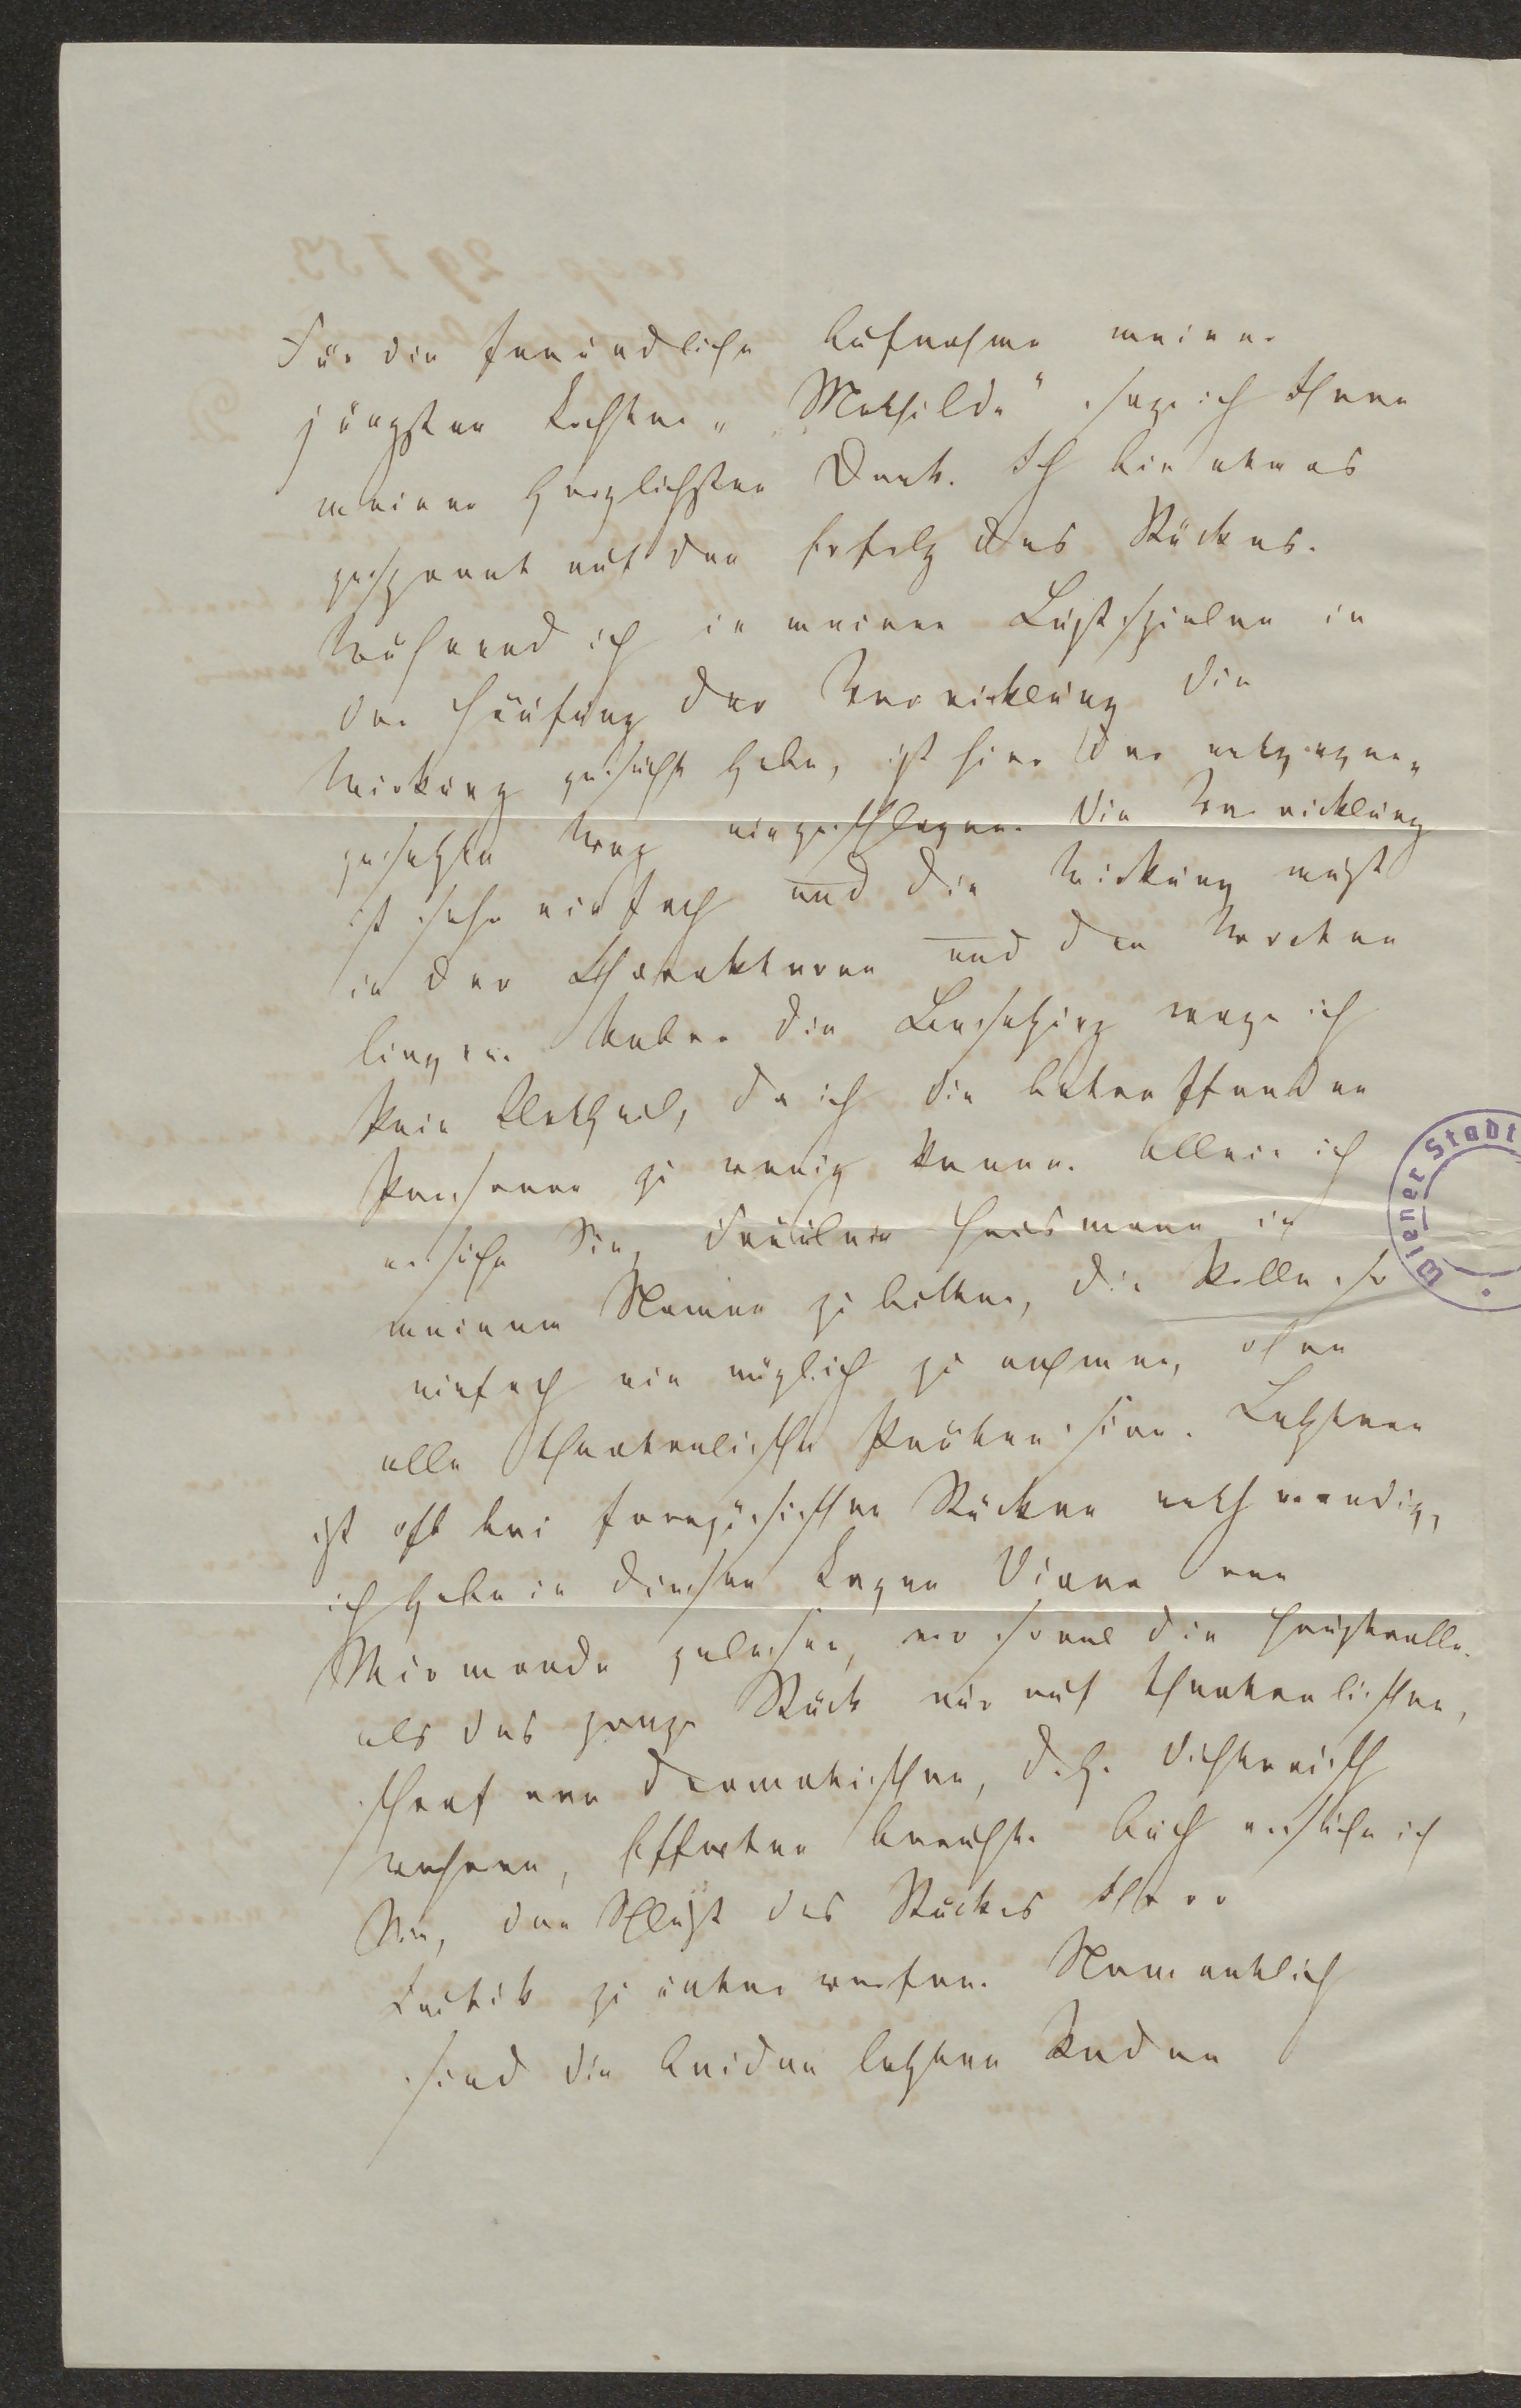 Für die freundliche Aufnahme meiner
jüngsten Tochter „Mathilde“ sage ich Ihnen
meinen herzlichsten Dank. Ich bin etwas
gespannt auf den Erfolg des Stückes.
Während ich in meinen Lustspielen in
der Häufung der Verwicklung die
Wirkung gesucht habe, ist hier der entgegen-
gesetzte Weg eingeschlagen. Die Verwicklung
ist sehr einfach und die Wirkung muß
in den Charakteren und den Worten
liegen. Ueber die Besetzung wage ich
kein Urtheil, da ich die betreffenden
Personen zu wenig kenne. Allein ich
ersuche Sie, Fräulein Heusmann in
meinem Namen zu bitten, die Rolle so
einfach wie möglich zu nehmen, ohne
alle theatralische Prätension. Letztere
ist oft bei französischen Stücken nothwendig,
ich habe in diesen Tagen Diane von
Mirmande gelesen, wo sowol die Hauptrolle
als das ganze Stück nur auf theatralischen,
scharf von dramatischen, d. h. dichterisch
wahren, Effecten beruht. Auch ersuche ich
Sie, den Schluß des Stückes Ihrer
Kritik zu unterwerfen. Namentlich
sind die beiden letzten Reden
Wiener Stadt